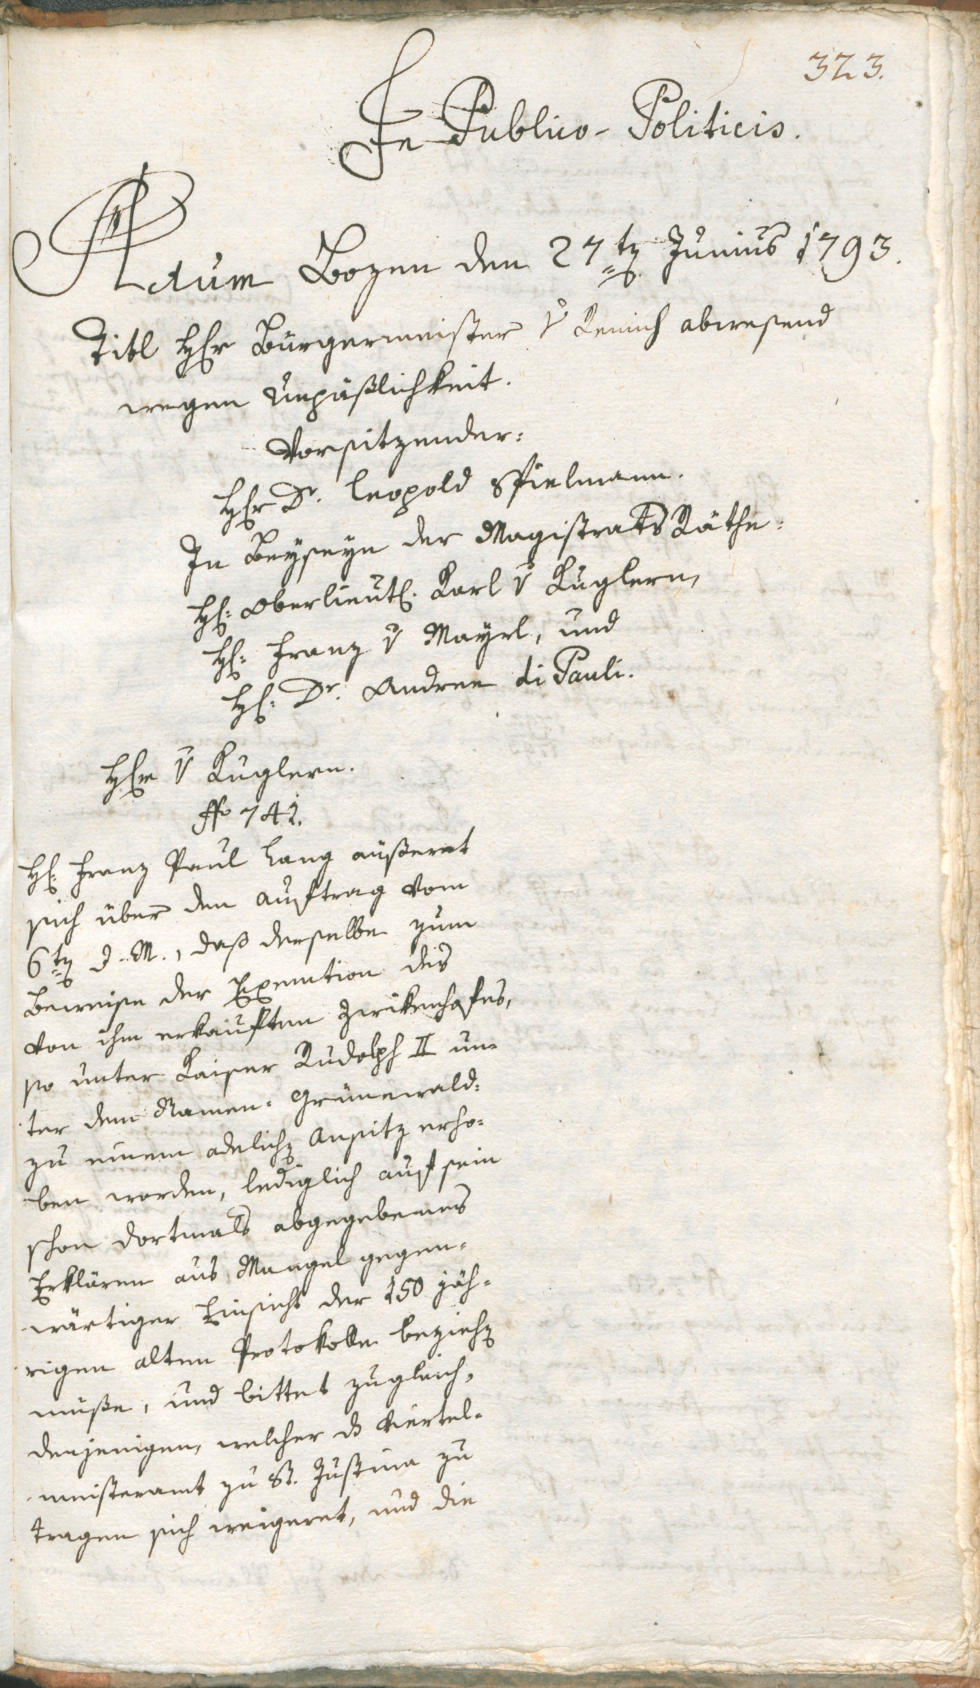 323.
In Publico-Politicis.
Actum Bozen den 27tz Junius 1793.
Titl HEr Bürgermeister v Remich abwesend
wegen Unpäßlichkeit.
Vorsitzender:
HEr Dr. Leopold Spielmann.
In Beyseyn der Magistrats Räthe:
H: Oberlieut. Karl v Kuglern,
H: Franz v Mayrl, und
H: Dr. Andree di Pauli.
HEr v Kuglern.
No 741.
H: Franz Paul Lang äußeret
sich über den Auftrag vom
6tz d. M., daß derselbe zum
Beweise der Exemtion des
von ihm erkauften Zwikenhofes,
so unter Kaiser Rudolph II un-
ter dem Namen: Grünewald:
zu einem adelichz Ansitz erho-
ben worden, lediglich auf sein
schon dortmals abgegebenes
Erklären aus Mangel gegen-
wärtiger Einsicht der 150 jäh-
rigen alten Protokolle beziehz
müße, und bittet zugleich,
denjenigen, welcher ds Viertel-
meisteramt zu St. Justina zu
tragen sich weigeret, und die